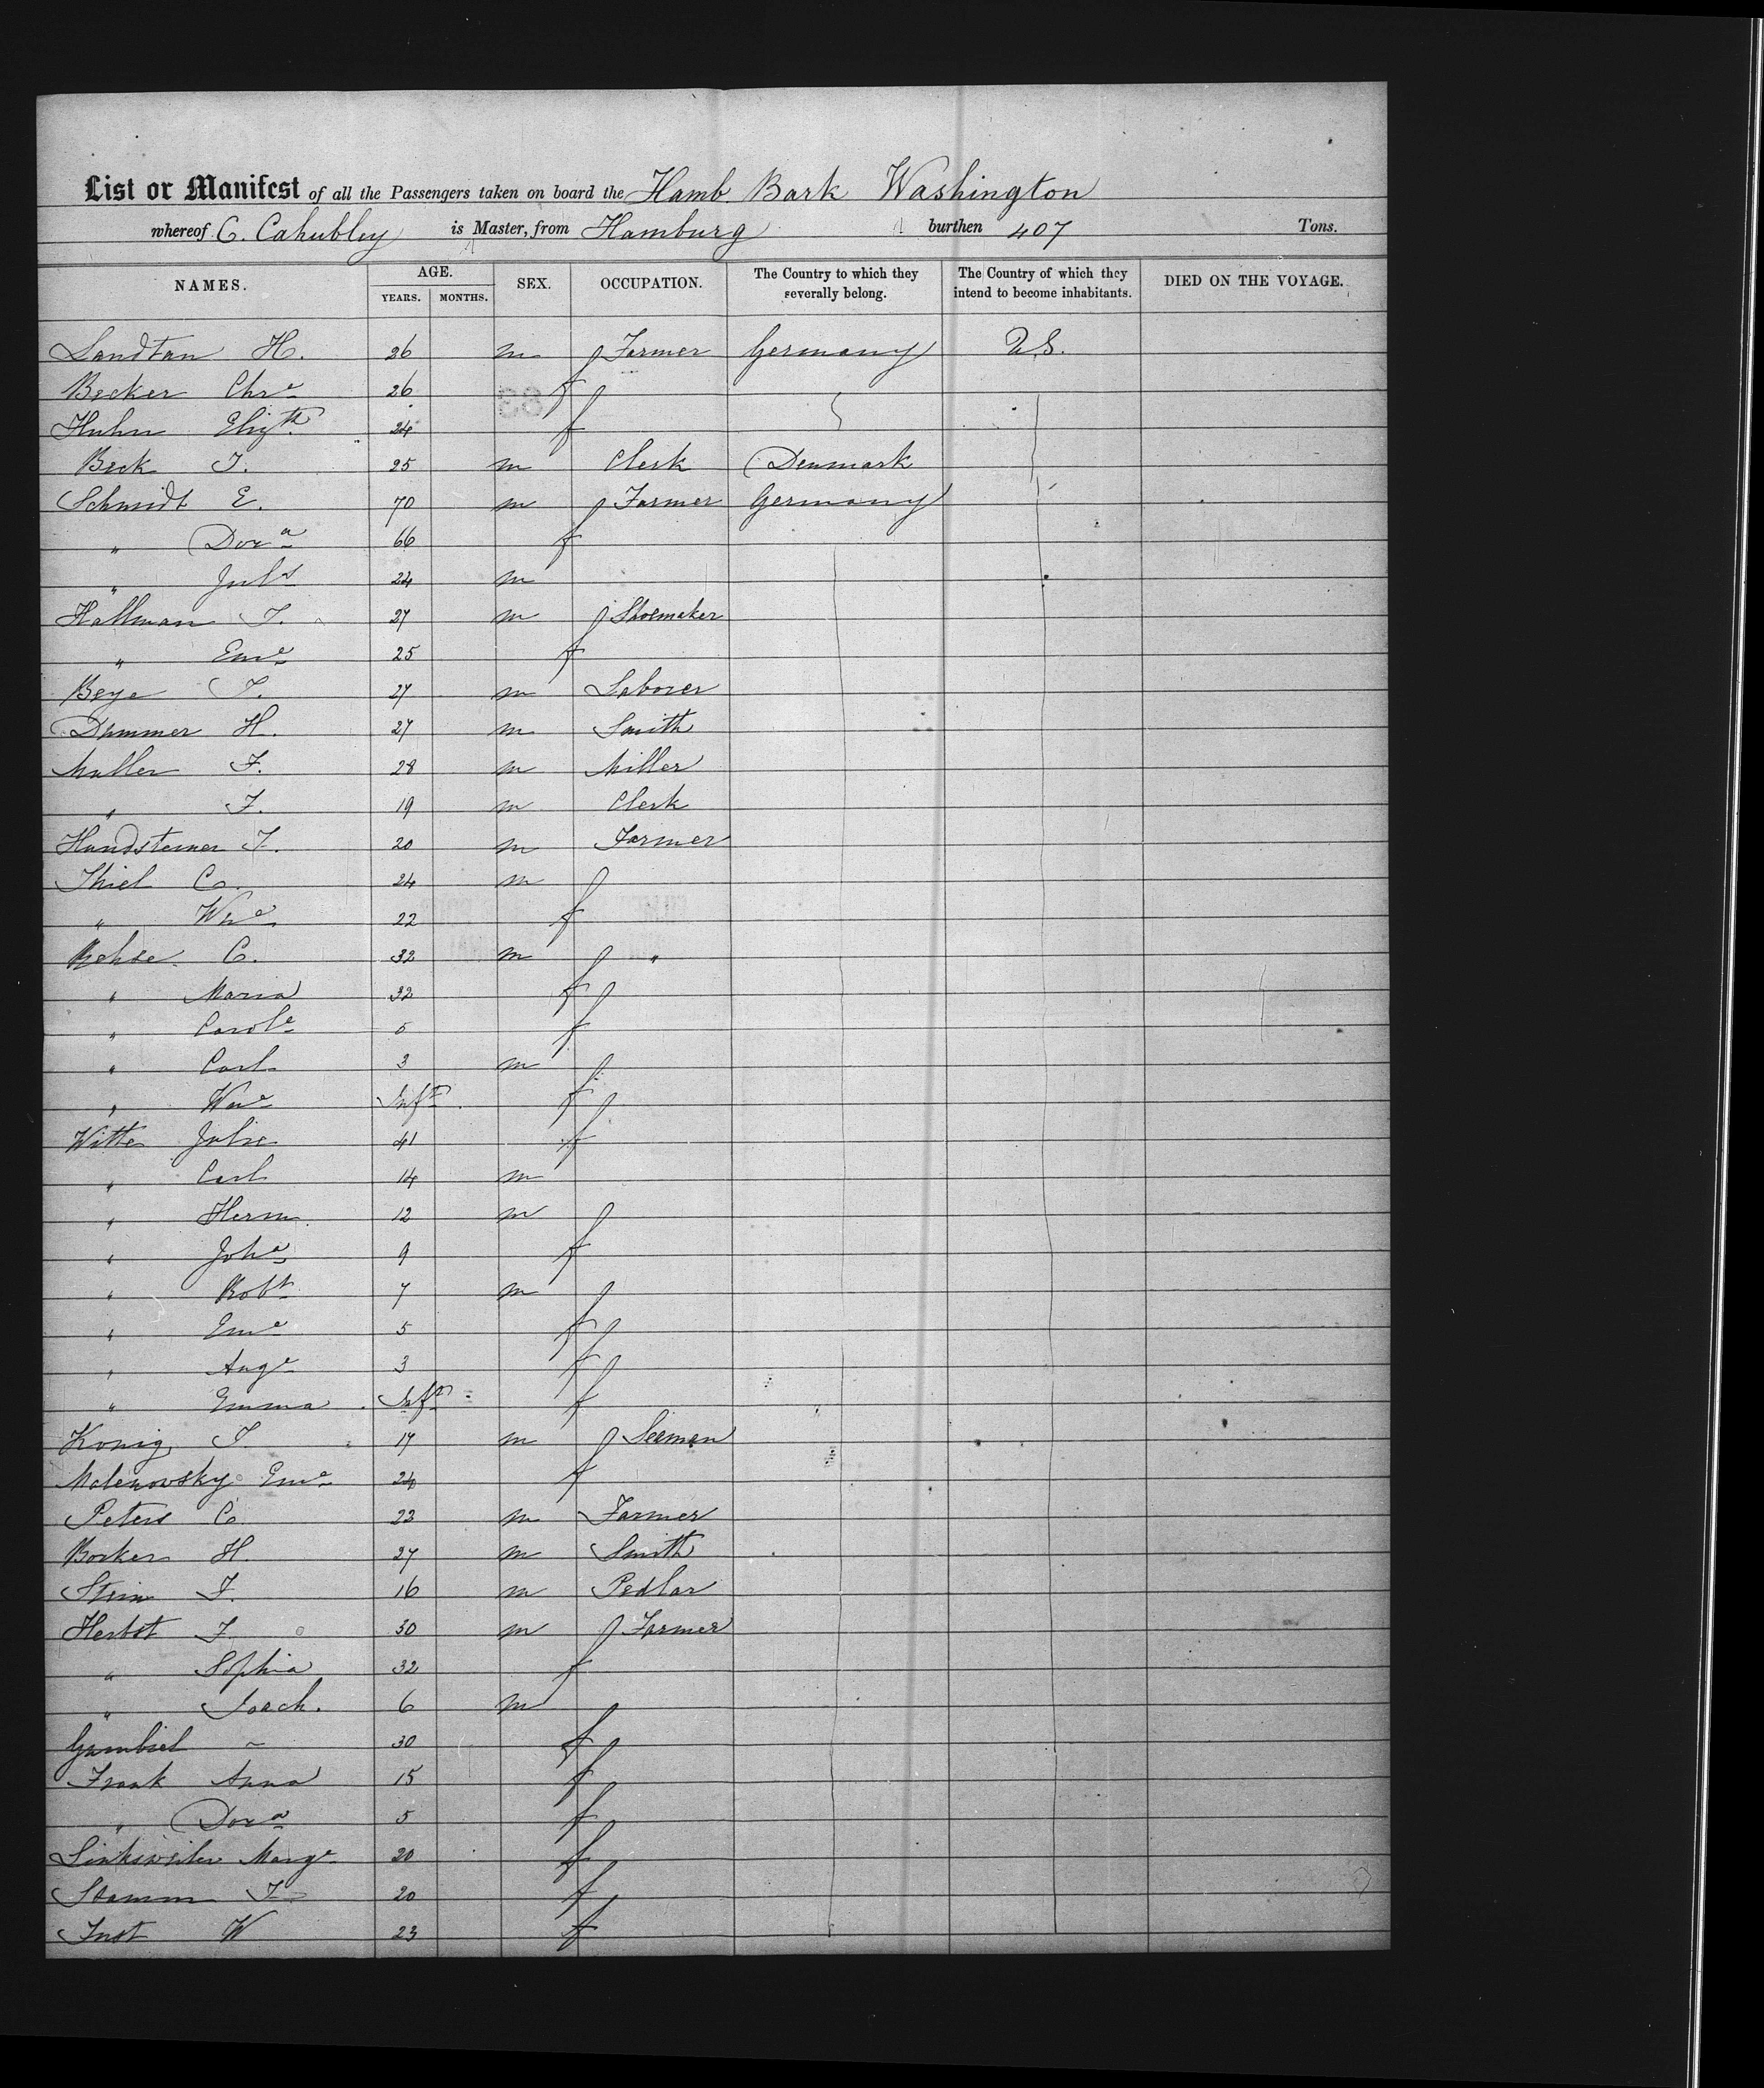 List or Manifest of all the Passengers taken on board the Hamb. Bark Washington
whereof C. Cahubley is Master, from Hamburg burthen 407 Tons.
NAMES. AGE. YEARS. MONTHS. SEX. OCCUPATION. The Country to which they severally belong. The Country of which they intend to become inhabitants. DIED ON THE VOYAGE.
Landtan H. 26 m Farmer Germany U.S.
Becker Chre 26 f
Huhn Elizth 24 f
Beck J. 25 m Clerk Denmark
Schmidt E. 70 m Farmer Germany
" Dora 66 f
" Juls 24 m
Hallman J. 27 m Shoemaker
" Eme 25 f
Beye J. 27 m Laborer
Dummer H. 27 m Smith
Muller F. 28 m Miller
" F. 19 m Clerk
Hundsteiner F. 20 m Farmer
Thiel C. 24 m
" Wne 22 f
Rehse C. 32 m "
" Maria 32 f
" Carole 5 f
" Carl 3 m
" Wne Inft f
Witte Julie 41 f
" Carl 14 m
" Herm. 12 m
" Joha 9 f
" Robt 7 m
" Eme 5 f
" Auge 3 f
" Emma Inft f
Konig J. 17 m Seeman
Malenowsky Eme 24 f
Peters C. 22 m Farmer
Borker H. 27 m Smith
Stein F. 16 m Pedlar
Herbst J 30 m Farmer
" Sophia 32 f
" Joach. 6 m
30 f
Frank Anna 15 f
" Dora 5 f
Linksweiler Marge 20 f
Stamm F 20 f
Just W 23 f